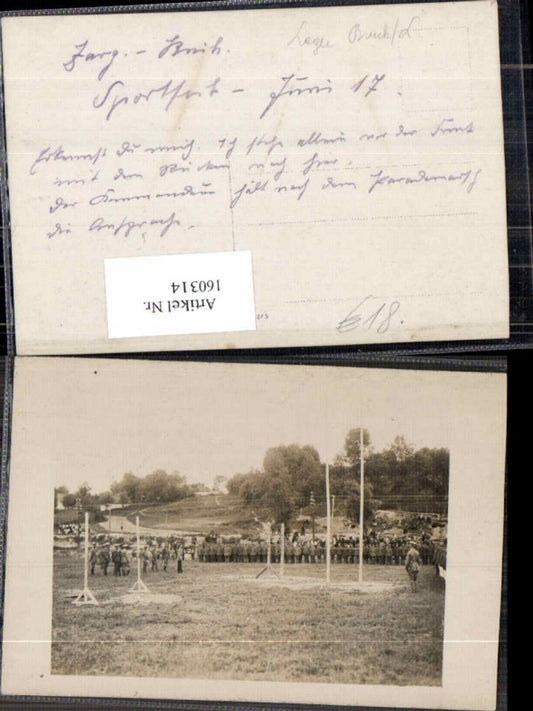 Lager Bruck/L
Sportfest - Juni 17.
Erkennst du mich. Ich stehe allein vor der Front
mit dem Rücken nach hier.
Der Kommandeur hält nach dem Parademarsch
die Ansprache.
Artikel Nr.
160314
€18.